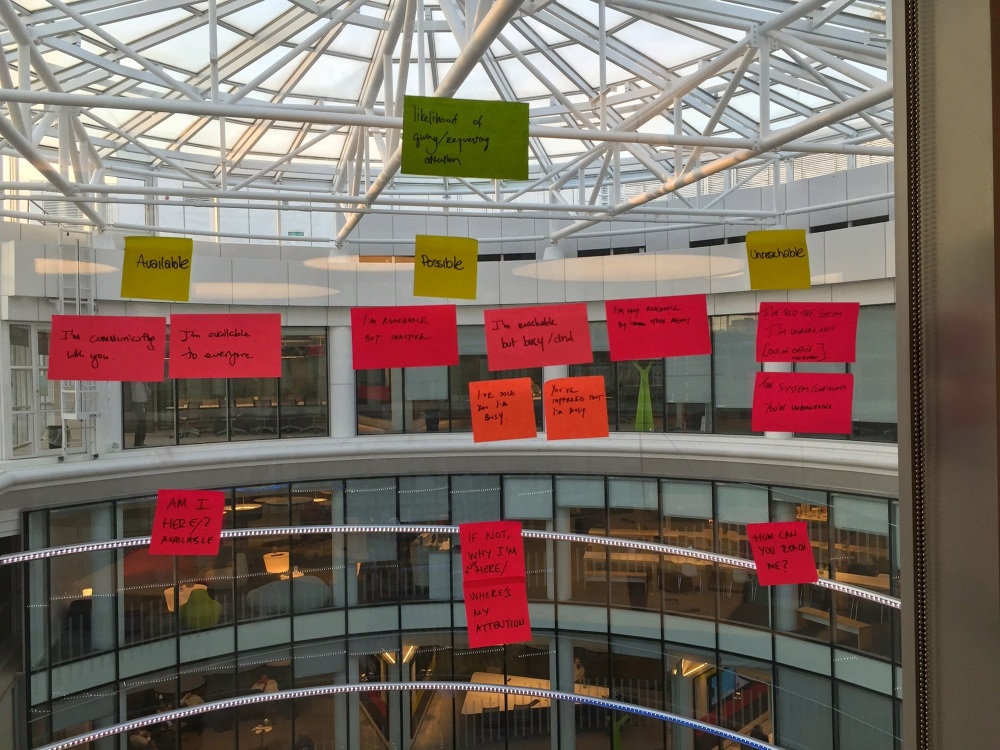 likelihood of
giving/requesting
attention
Available
Possible
Unreachable
I'm communicating
with you.
I'm available
to everyone
I'm REACHABLE
BUT INACTIVE
I'm reachable
but busy/dnd
I'm only REACHABLE
by
I'VE TOLD THE SYSTEM
I'M UNAVAILABLE
[OUT OF OFFICE
I'VE TOLD
YOU I'M
BUSY
YOU'VE
INFERRED THAT
I'M BUSY.
THE SYSTEM CONFIGURES
YOU'RE UNREACHABLE
AM I
HERE/?
AVAILABLE
IF NOT,
WHY I'M
NOT HERE/
WHERE'S
MY
ATTENTION
HOW CAN
YOU REACH
ME?